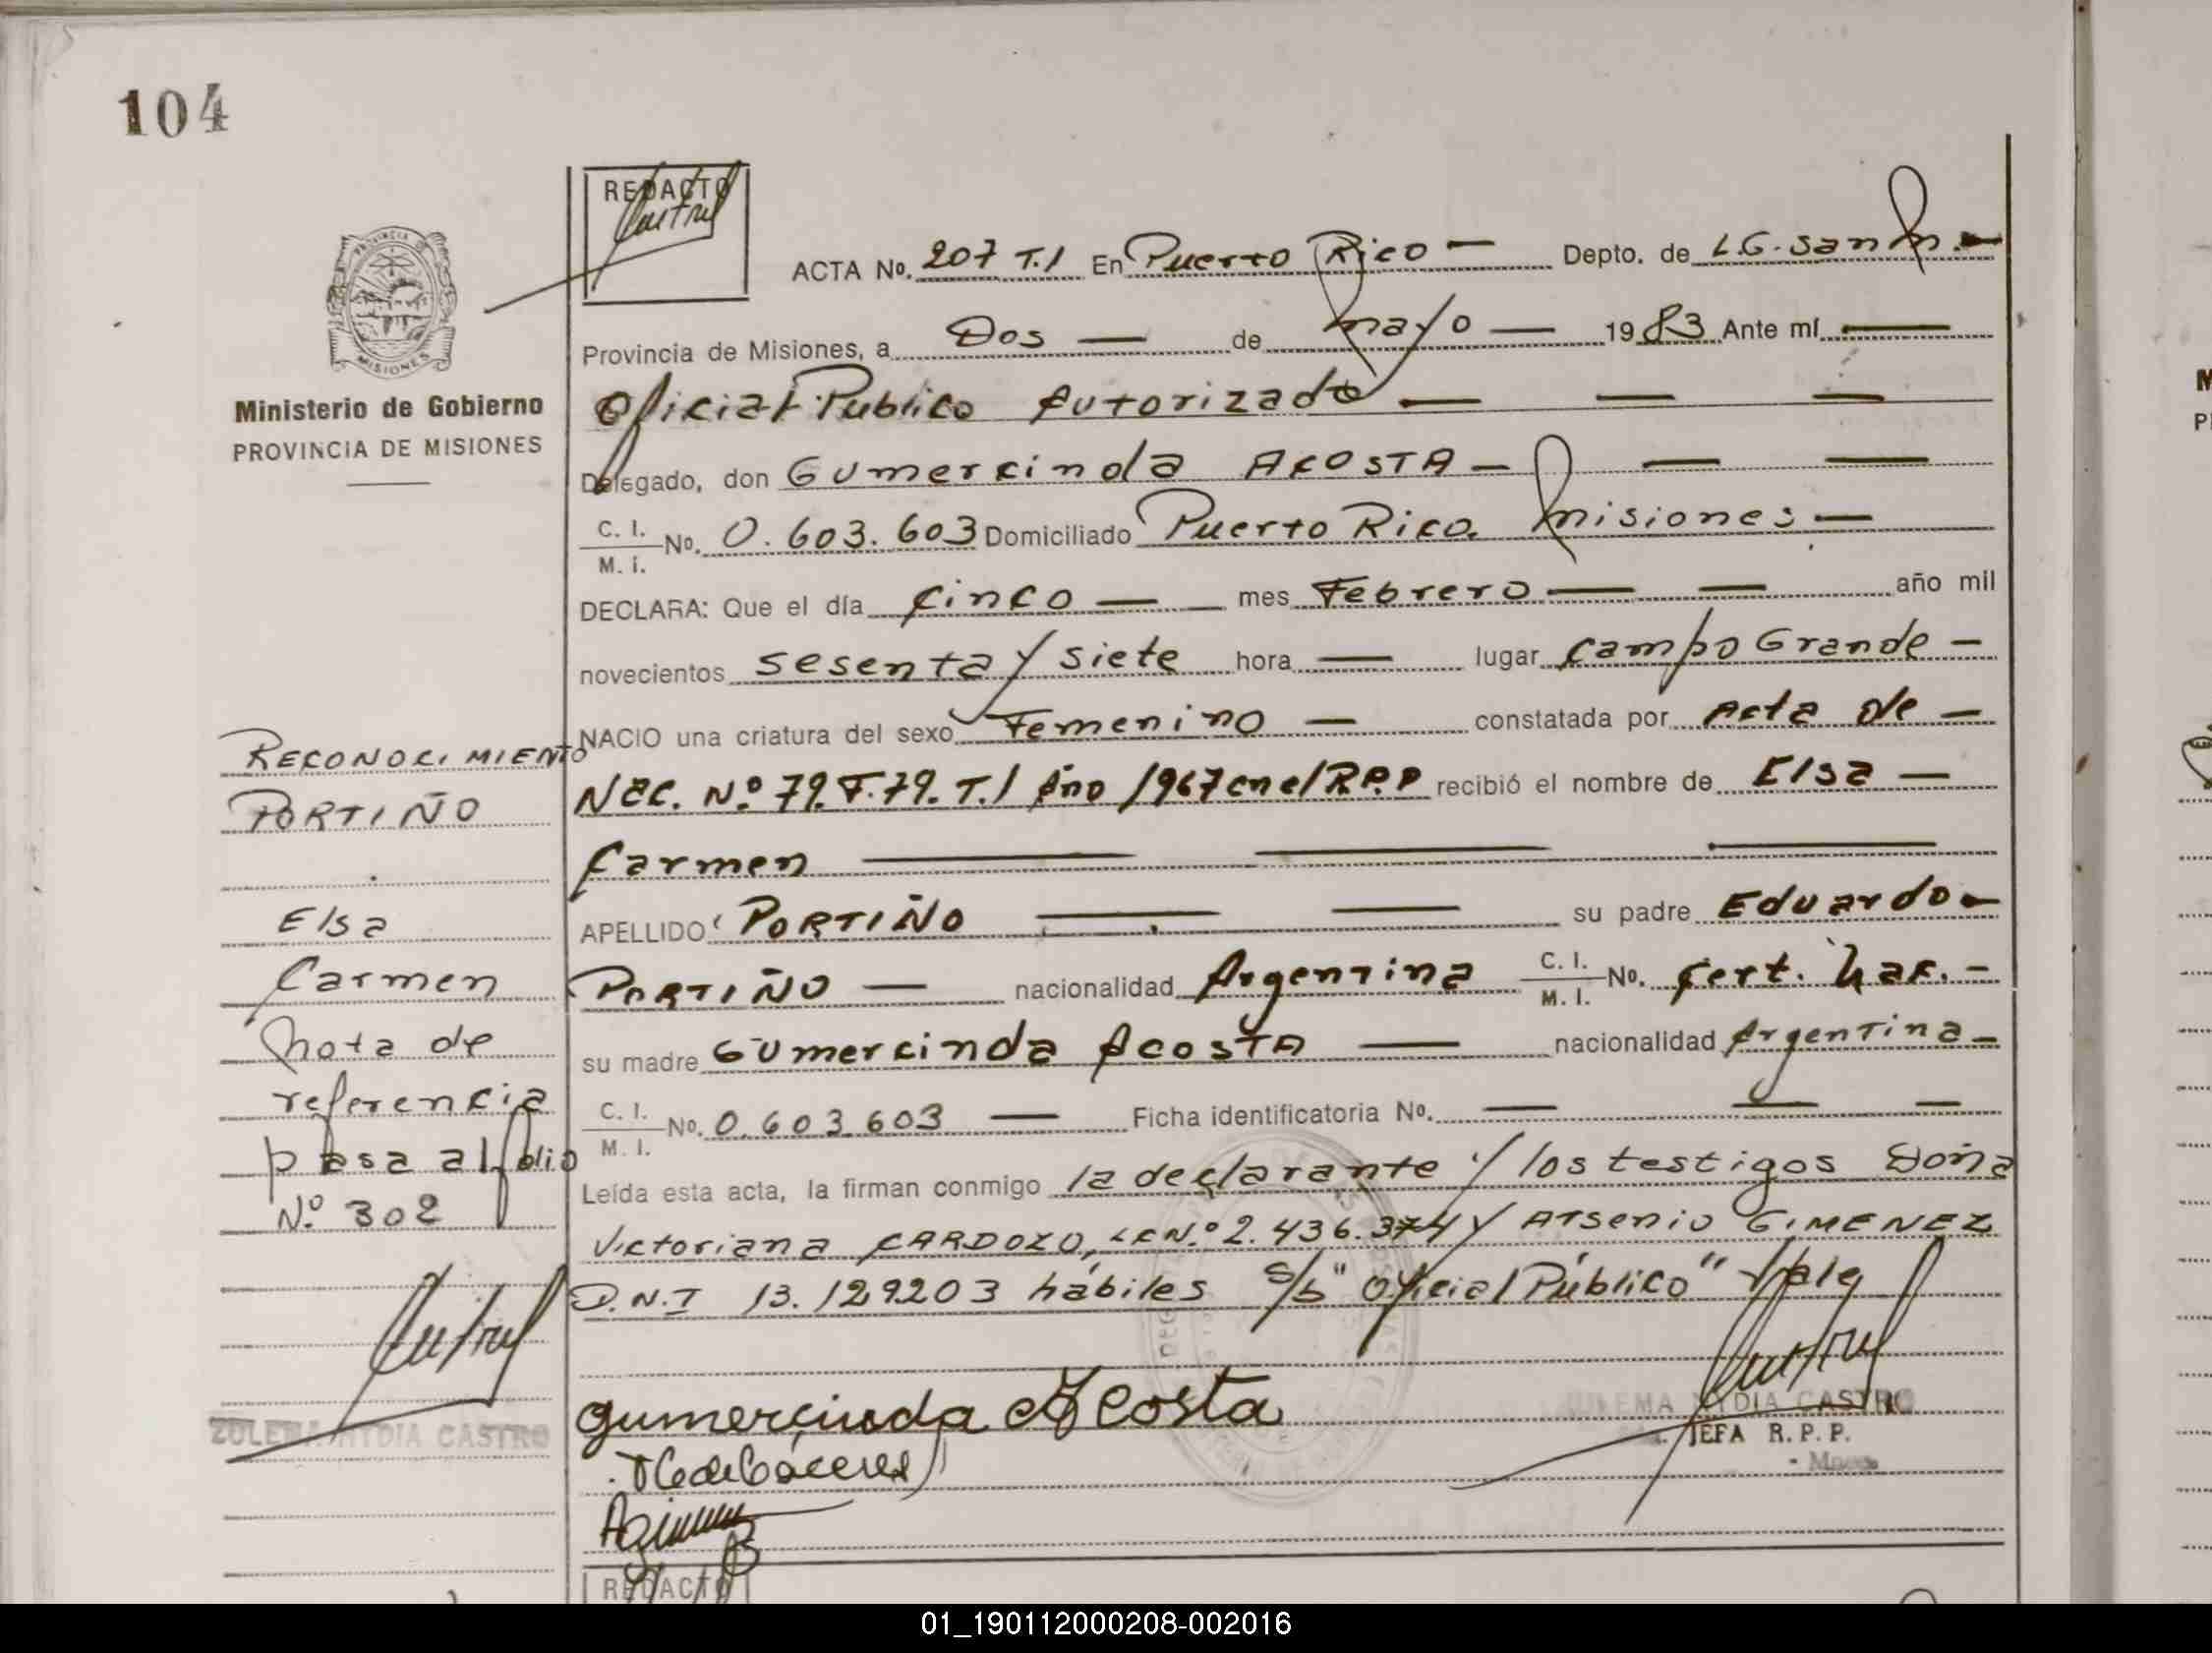 104
REDACTO
ACTA No. 207 T.1 En Puerto Rico — Depto. de L.G. San M. —
Provincia de Misiones, a Dos — de mayo — 1983 Ante mí —
Oficial Público Autorizado — — —
Delegado, don Gumercinda ACOSTA — — —
C. I. / M. i. No. 0.603.603 Domiciliado Puerto Rico. Misiones —
DECLARA: Que el día cinco — mes Febrero — — año mil
novecientos sesenta y siete hora — lugar Campo Grande —
NACIO una criatura del sexo Femenino — constatada por Acta de —
Nac. N.º 79. F.79. T.1 Año 1967 en el R.P.P recibió el nombre de Elsa —
Carmen — — —
APELLIDO PORTIÑO — — su padre Eduardo —
PORTIÑO — nacionalidad Argentina C. I. / M. I. No. Cert. Nac. —
su madre Gumercinda ACOSTA — nacionalidad Argentina —
C. I. / M. I. No. 0.603.603 — Ficha identificatoria No. — — —
Leída esta acta, la firman conmigo la declarante y los testigos Doña
Victoriana CARDOZO, LC N.º 2.436.374 y Arsenio GIMENEZ
D.N.I 13.129203 hábiles S/b "Oficial Público" Vale
gumercinda Acosta
ZULEMA NYDIA CASTRO
JEFA R. P. P.
PROVINCIA DE
MISIONES
Ministerio de Gobierno
PROVINCIA DE MISIONES
RECONOCIMIENTO
PORTIÑO
Elsa
Carmen
Nota de
referencia
pasa al folio
N.º 302
ZULEMA NYDIA CASTRO
REDACTO
01_190112000208-002016